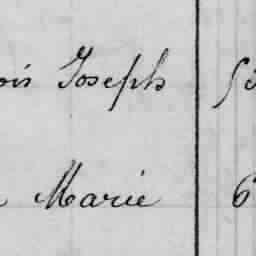 ois Joseph 5
Marie 6